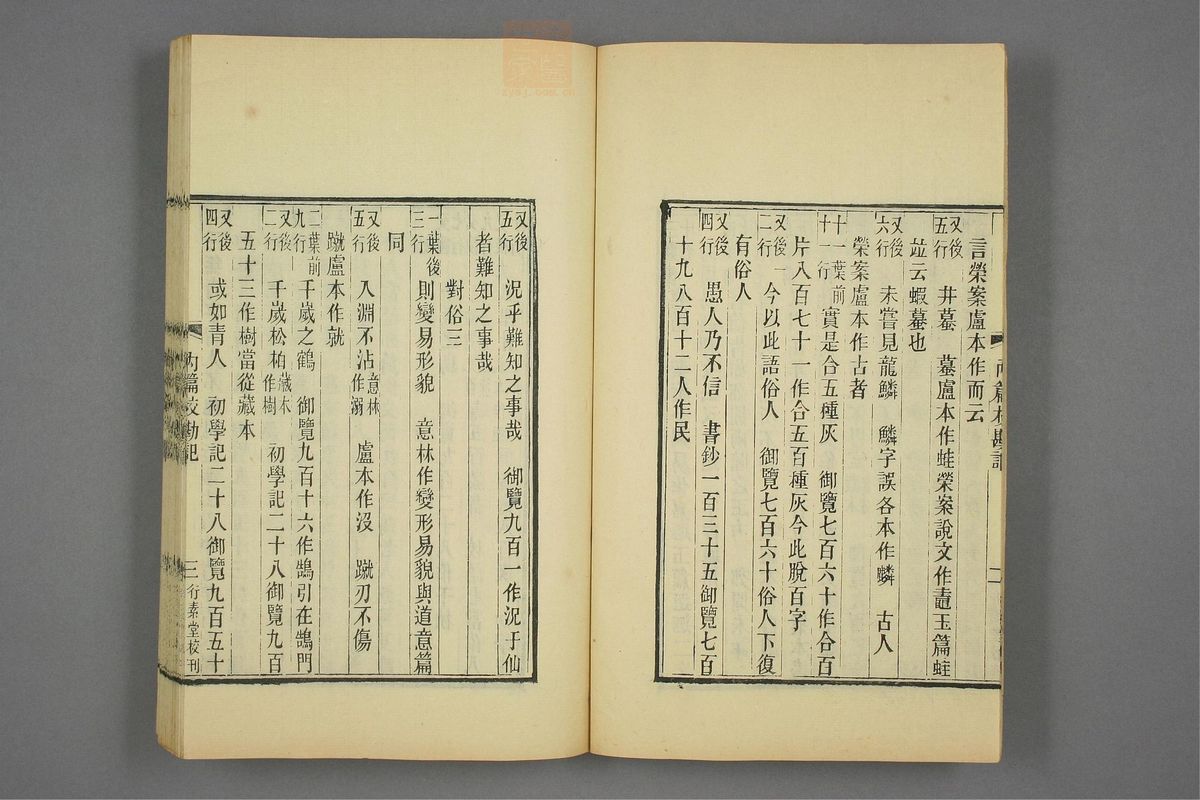 言榮案盧本作而云
又後五行 井蟇 蟇盧本作蛙榮案說文作鼃玉篇蛙
竝云蝦蟇也
又後六行 未嘗見龍鱗 鱗字誤各本作麟 古人
榮案盧本作古者
十一葉前十一行 實是合五種灰 御覽七百六十作合百
片八百七十一作合五百種灰今此脫百字
又後二行 今以此語俗人 御覽七百六十俗人下復
有俗人
又後四行 愚人乃不信 書鈔一百三十五御覽七百
十九八百十二人作民
篇校勘記
二
又後五行 況乎難知之事哉 御覽九百一作況于仙
者難知之事哉
對俗三
一葉後三行 則變易形貌 意林作變形易貌與道意篇
同
又後五行 入淵不沾 意林作溺 盧本作沒 蹴刃不傷
蹴盧本作就
二葉前九行 千歲之鶴 御覽九百十六作鵠引在鵠門
又後二行 千歲松柏 藏本作樹 初學記二十八御覽九百
五十三作樹當從藏本
又後四行 或如青人 初學記二十八御覽九百五十
內篇校勘記
三
行素堂校刊